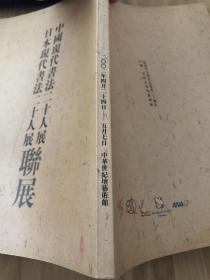 中國現代書法二十人展
日本現代書法二十人展
聯展
二〇〇二年四月二十四日—五月七日 中華世紀壇藝術館
ANA